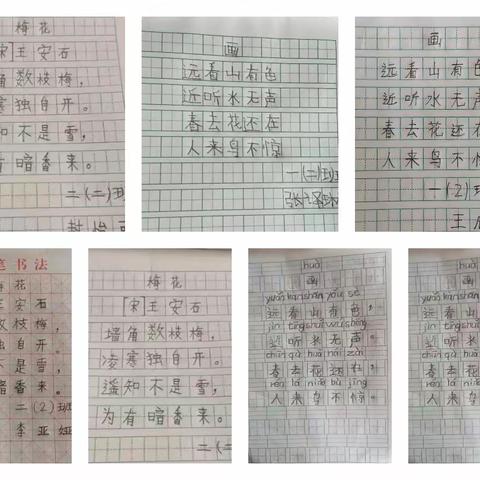 梅花
[宋]王安石
角数枝梅,
寒独自开。
知不是雪,
有暗香来。
二(二)班
画
远看山有色
近听水无声
春去花还在
人来鸟不惊
一(二)班
画
远看山有色
近听水无声
春去花还在
人来鸟不惊
一(2)班
王
笔书法
梅花
王安石
数枝梅,
独自开。
不是雪,
暗香来。
二(2)班
李亚娅
梅花
[宋]王安石
墙角数枝梅,
凌寒独自开。
遥知不是雪,
为有暗香来。
二(二
huà
画
yuǎn kàn shān yǒu sè
远看山有色,
jìn tīng shuǐ wú shēng
近听水无声。
chūn qù huā hái zài
春去花还在,
rén lái niǎo bù jīng
人来鸟不惊。
huà
画
yuǎn kàn shān yǒu
远看山有
jìn tīng shuǐ wú
近听水无
chūn qù huā hái
春去花还
rén lái niǎo bù
人来鸟不